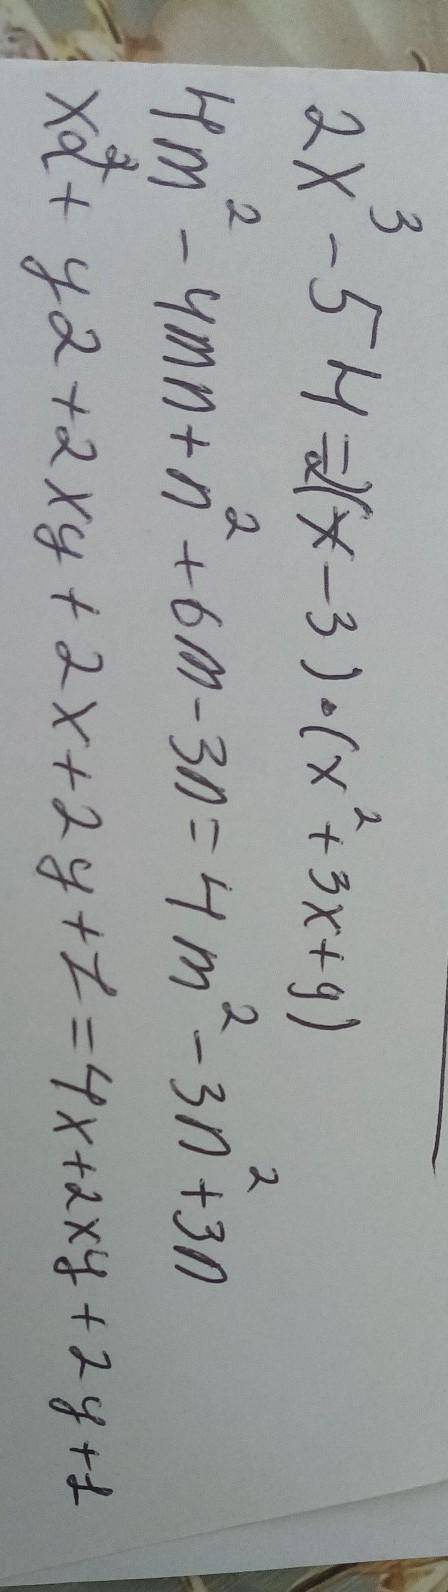 2x³ - 54 = 2(x - 3) · (x² + 3x + 9)
4m² - 4mn + n² + 6m - 3n = 4m² - 3n² + 3n
x² + y2 + 2xy + 2x + 2y + 1 = 4x + 2xy + 2y + 1